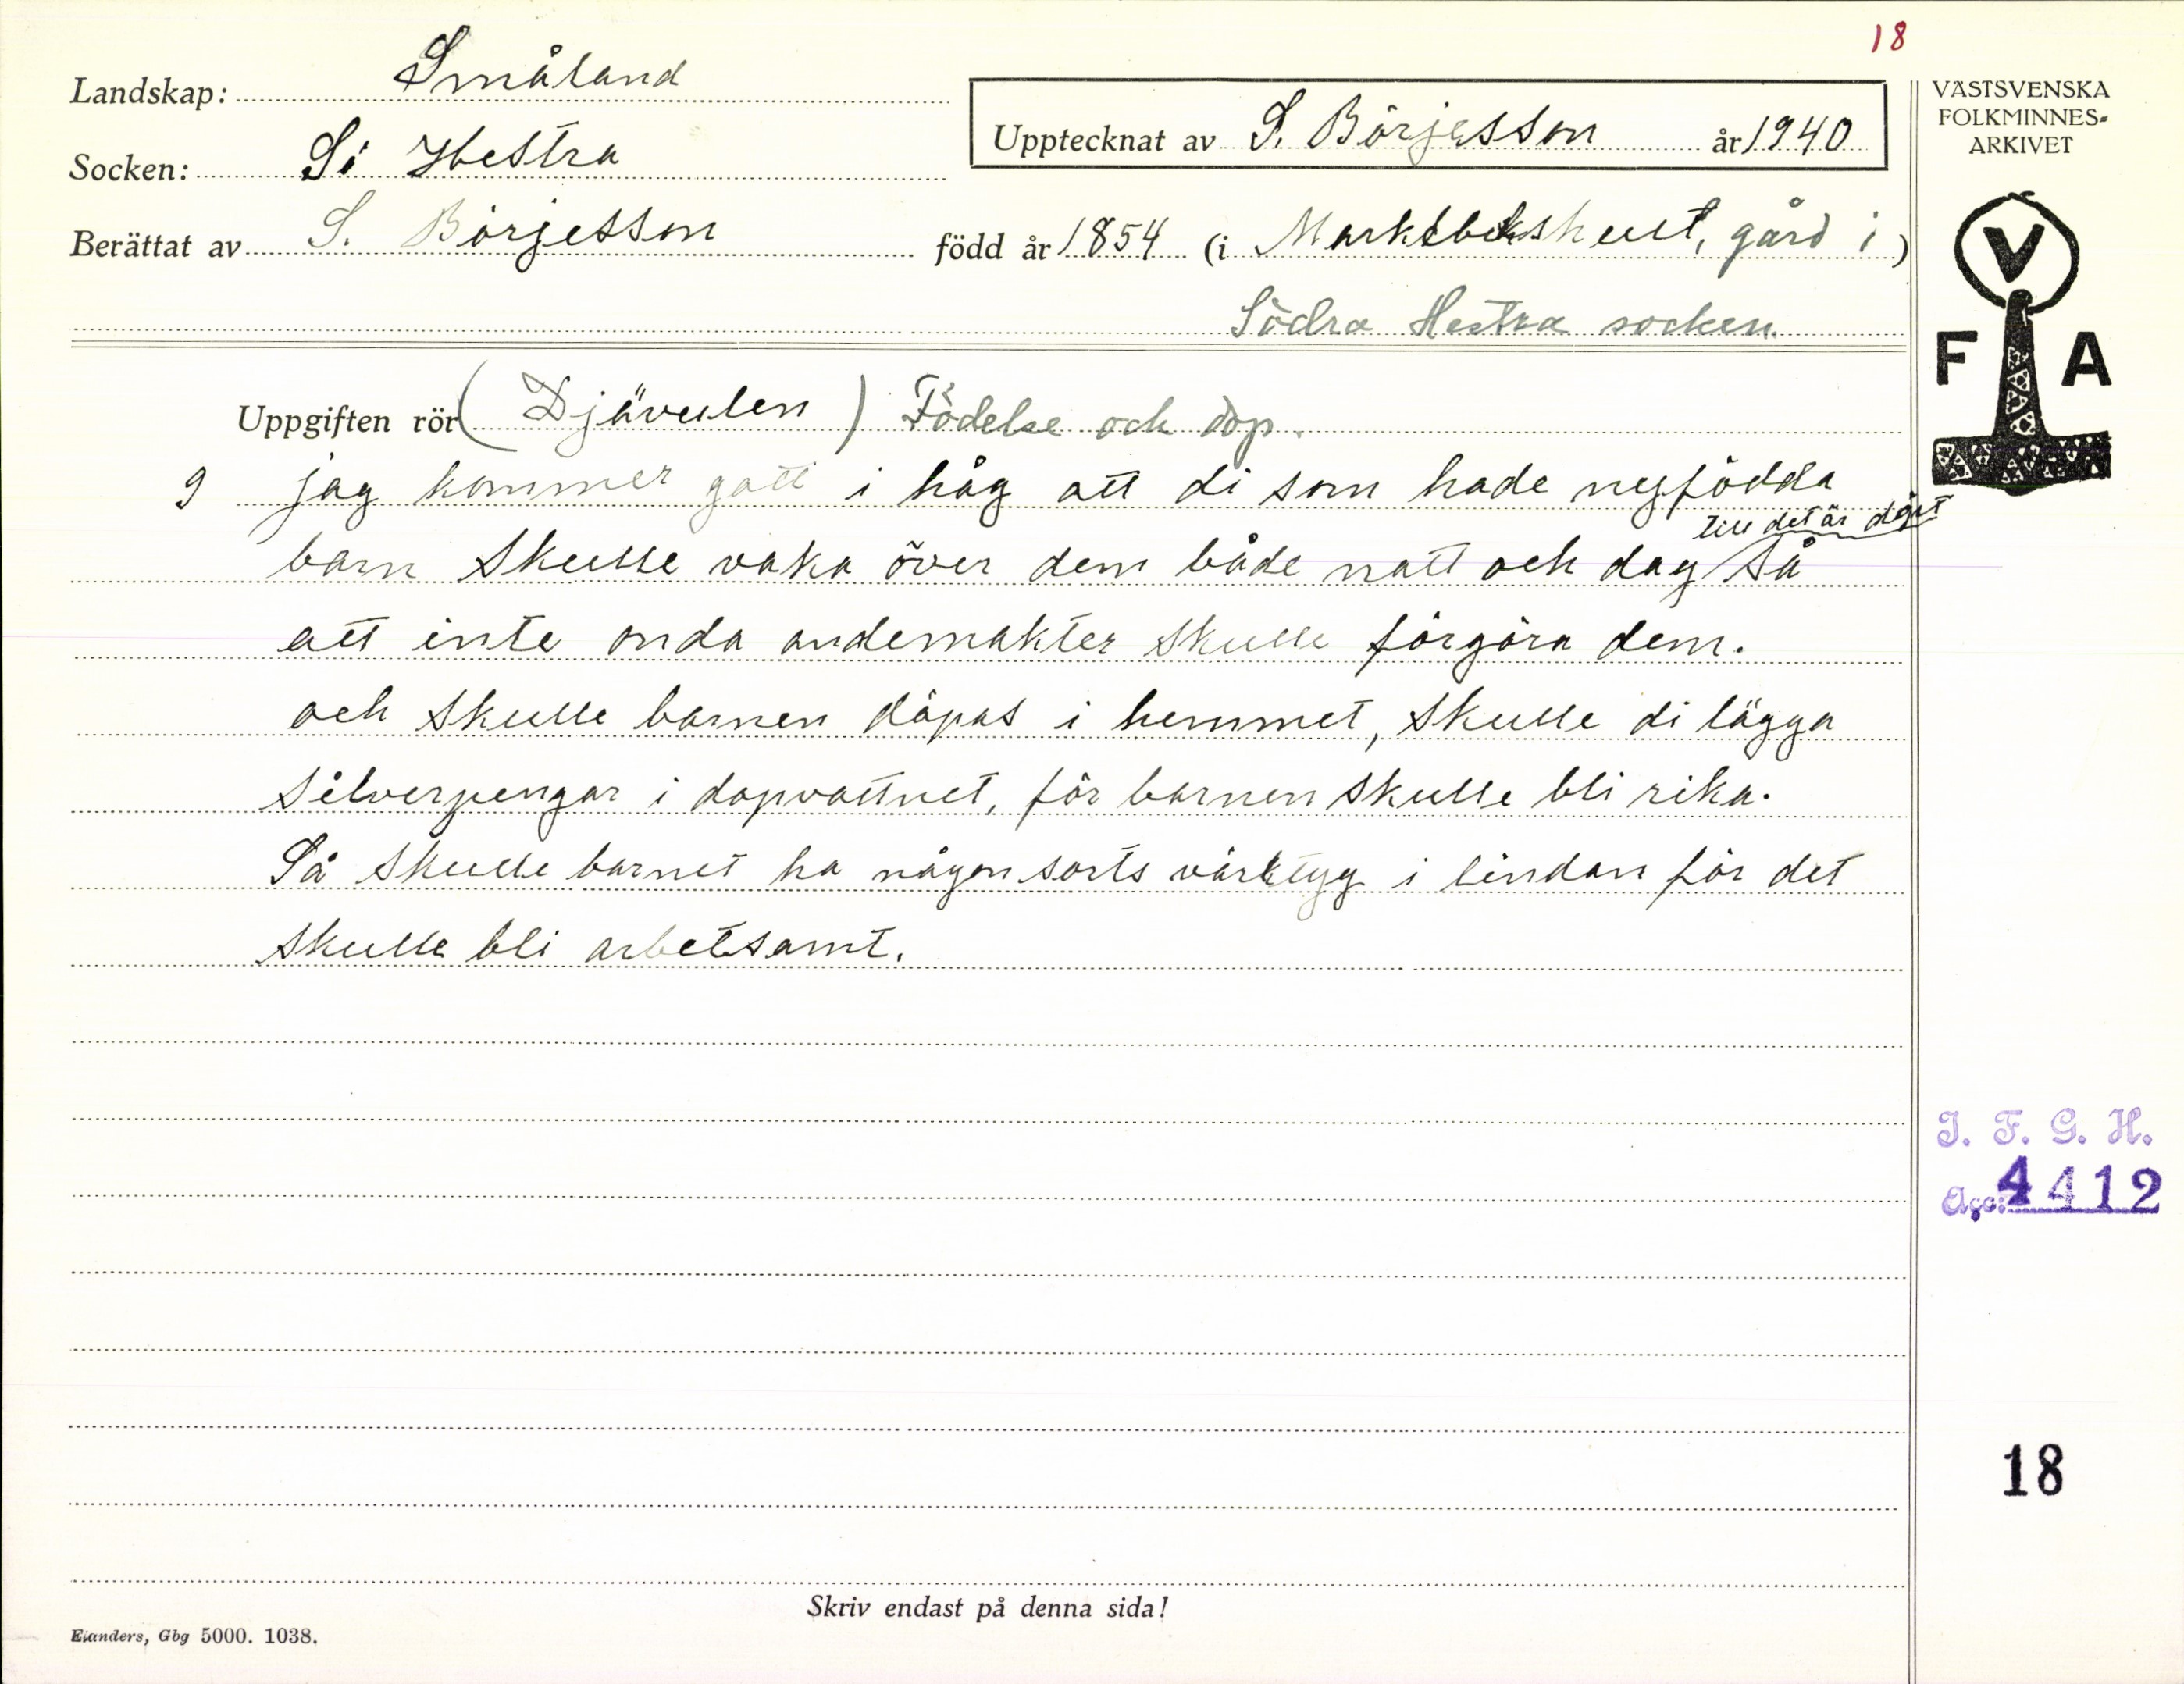 18
Landskap: Småland
Socken: Sö Hestra
Upptecknat av S. Börjesson år 1940
Berättat av S. Börjesson född år 1854 (i gård i)
Södra Hestra socken.
Uppgiften rör (Djävulen) Födelse och dop.
9 jag kommer gott i håg att di som hade nyfödda
till det är döpt
barn skulle vaka över dem både natt och dag så
att inte onda andemakter skulle förgöra dem.
och skulle barnen döpas i hemmet, skulle di lägga
silverpengar i dopvattnet, för barnen skulle bli rika.
Så skulle barnet ha någon sorts värktyg i lindan för det
skulle bli arbetsamt.
Skriv endast på denna sida!
Elanders, Gbg 5000. 1038.
VÄSTSVENSKA
FOLKMINNES-
ARKIVET
V
F A
I. F. G. H.
Acc: 4412
18